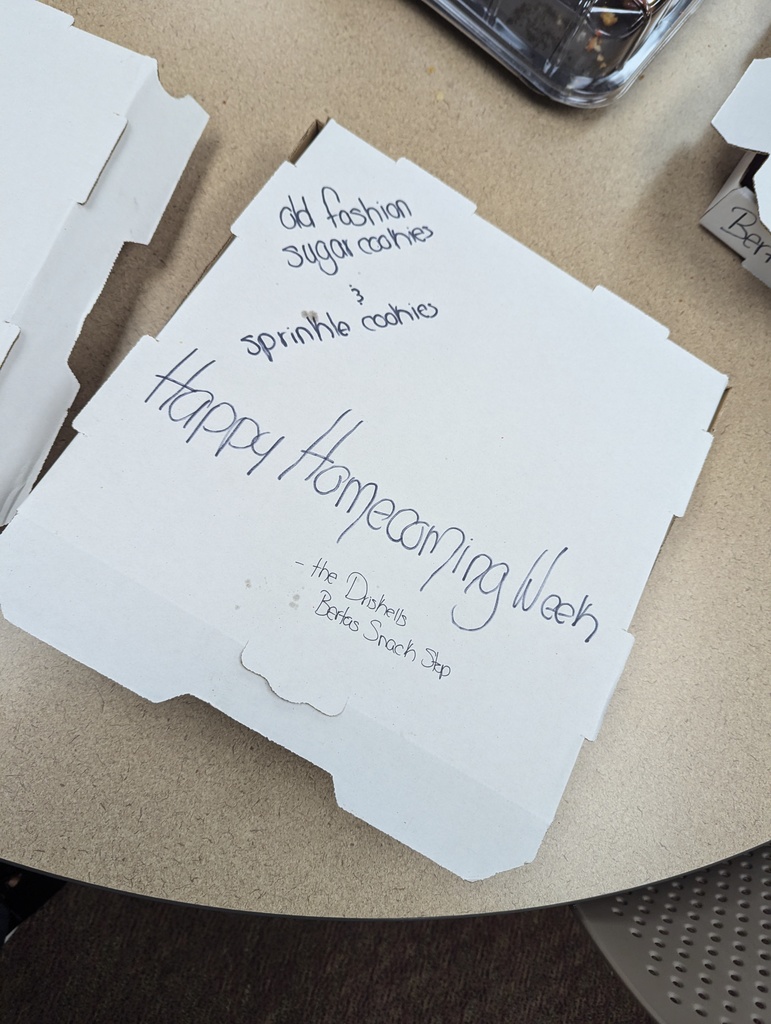 old fashion
sugar cookies
&
sprinkle cookies
Happy Homecoming Week
- the Driskells
Bertas Snack Stop
Ber